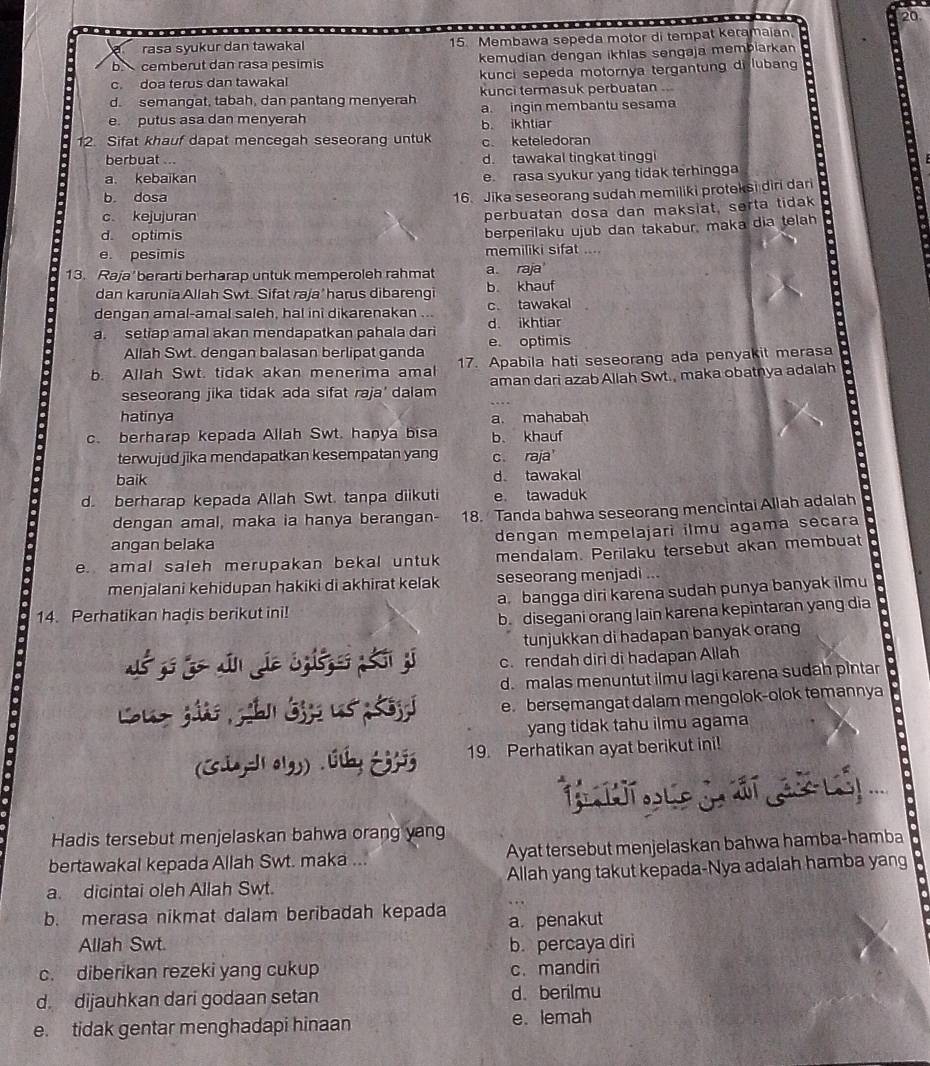 20.
a. rasa syukur dan tawakal
b. cemberut dan rasa pesimis
c. doa terus dan tawakal
d. semangat, tabah, dan pantang menyerah
e. putus asa dan menyerah
12. Sifat khauf dapat mencegah seseorang untuk
berbuat ...
a. kebaikan
b. dosa
c. kejujuran
d. optimis
e. pesimis
13. Raja' berarti berharap untuk memperoleh rahmat
dan karunia Allah Swt. Sifat raja' harus dibarengi
dengan amal-amal saleh, hal ini dikarenakan ...
a. setiap amal akan mendapatkan pahala dari
Allah Swt. dengan balasan berlipat ganda
b. Allah Swt. tidak akan menerima amal
seseorang jika tidak ada sifat raja' dalam
hatinya
c. berharap kepada Allah Swt. hanya bisa
terwujud jika mendapatkan kesempatan yang
baik
d. berharap kepada Allah Swt. tanpa diikuti
dengan amal, maka ia hanya berangan-
angan belaka
e. amal saleh merupakan bekal untuk
menjalani kehidupan hakiki di akhirat kelak
14. Perhatikan hadis berikut ini!
لَوْ أَنَّكُمْ تَتَوَكَّلُوْنَ عَلَى اللهِ حَقَّ تَوَكُّلِهِ
لَرَزَقَكُمْ كَمَا يَرْزُقُ الطَّيْرَ, تَغْدُوْ خِمَاصًا
وَتَرُوْحُ بِطَانًا. (رواه الترمذي)
Hadis tersebut menjelaskan bahwa orang yang
bertawakal kepada Allah Swt. maka ...
a. dicintai oleh Allah Swt.
b. merasa nikmat dalam beribadah kepada
Allah Swt.
c. diberikan rezeki yang cukup
d. dijauhkan dari godaan setan
e. tidak gentar menghadapi hinaan
15. Membawa sepeda motor di tempat keramaian,
kemudian dengan ikhlas sengaja membiarkan
kunci sepeda motornya tergantung di lubang
kunci termasuk perbuatan ...
a. ingin membantu sesama
b. ikhtiar
c. keteledoran
d. tawakal tingkat tinggi
e. rasa syukur yang tidak terhingga
16. Jika seseorang sudah memiliki proteksi diri dari
perbuatan dosa dan maksiat, serta tidak
berperilaku ujub dan takabur, maka dia telah
memiliki sifat ....
a. raja'
b. khauf
c. tawakal
d. ikhtiar
e. optimis
17. Apabila hati seseorang ada penyakit merasa
aman dari azab Allah Swt., maka obatnya adalah
....
a. mahabah
b. khauf
c. raja'
d. tawakal
e. tawaduk
18. Tanda bahwa seseorang mencintai Allah adalah
dengan mempelajari ilmu agama secara
mendalam. Perilaku tersebut akan membuat
seseorang menjadi ...
a. bangga diri karena sudah punya banyak ilmu
b. disegani orang lain karena kepintaran yang dia
tunjukkan di hadapan banyak orang
c. rendah diri di hadapan Allah
d. malas menuntut ilmu lagi karena sudah pintar
e. bersemangat dalam mengolok-olok temannya
yang tidak tahu ilmu agama
19. Perhatikan ayat berikut ini!
... إِنَّمَا يَخْشَى اللّٰهَ مِنْ عِبَادِهِ الْعُلَمٰٓؤُا
Ayat tersebut menjelaskan bahwa hamba-hamba
Allah yang takut kepada-Nya adalah hamba yang
...
a. penakut
b. percaya diri
c. mandiri
d. berilmu
e. lemah